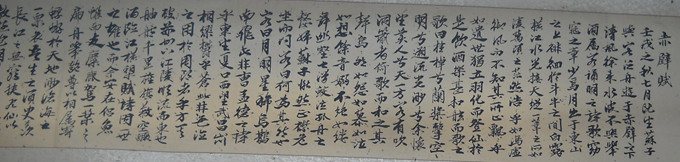 赤壁賦
壬戌之秋七月既望蘇子
與客泛舟遊於赤壁之下
清風徐來水波不興舉
酒屬客誦明月之詩歌窈
窕之章少焉月出於東山
之上徘徊於斗牛之間白露
橫江水光接天縱一葦之所如
凌萬頃之茫然浩浩乎如馮虛
御風而不知其所止飄飄乎
如遺世獨立羽化而登仙於
是飲酒樂甚扣舷而歌之
歌曰桂棹兮蘭槳擊空
明兮泝流光渺渺兮余懷
望美人兮天一方客有吹
洞簫者倚歌而和之其
聲嗚嗚然如怨如慕如泣
如訴餘音嫋嫋不絕如縷
舞幽壑之潛蛟泣孤舟之
嫠婦蘇子愀然正襟危
坐而問客曰何為其然也
客曰月明星稀烏鵲
南飛此非曹孟德之詩
乎東望夏口西望武昌山川
相繆鬱乎蒼蒼此非孟德
之困於周郎者乎方其
破荊州下江陵順流而東也
舳艫千里旌旗蔽空釃
酒臨江橫槊賦詩固一世
之雄也而今安在哉況吾
友麋鹿駕一葉之
扁舟舉匏樽以相屬寄
蜉蝣於天地渺滄海之
一粟哀吾生之須臾羨
長江之無窮挾飛仙以